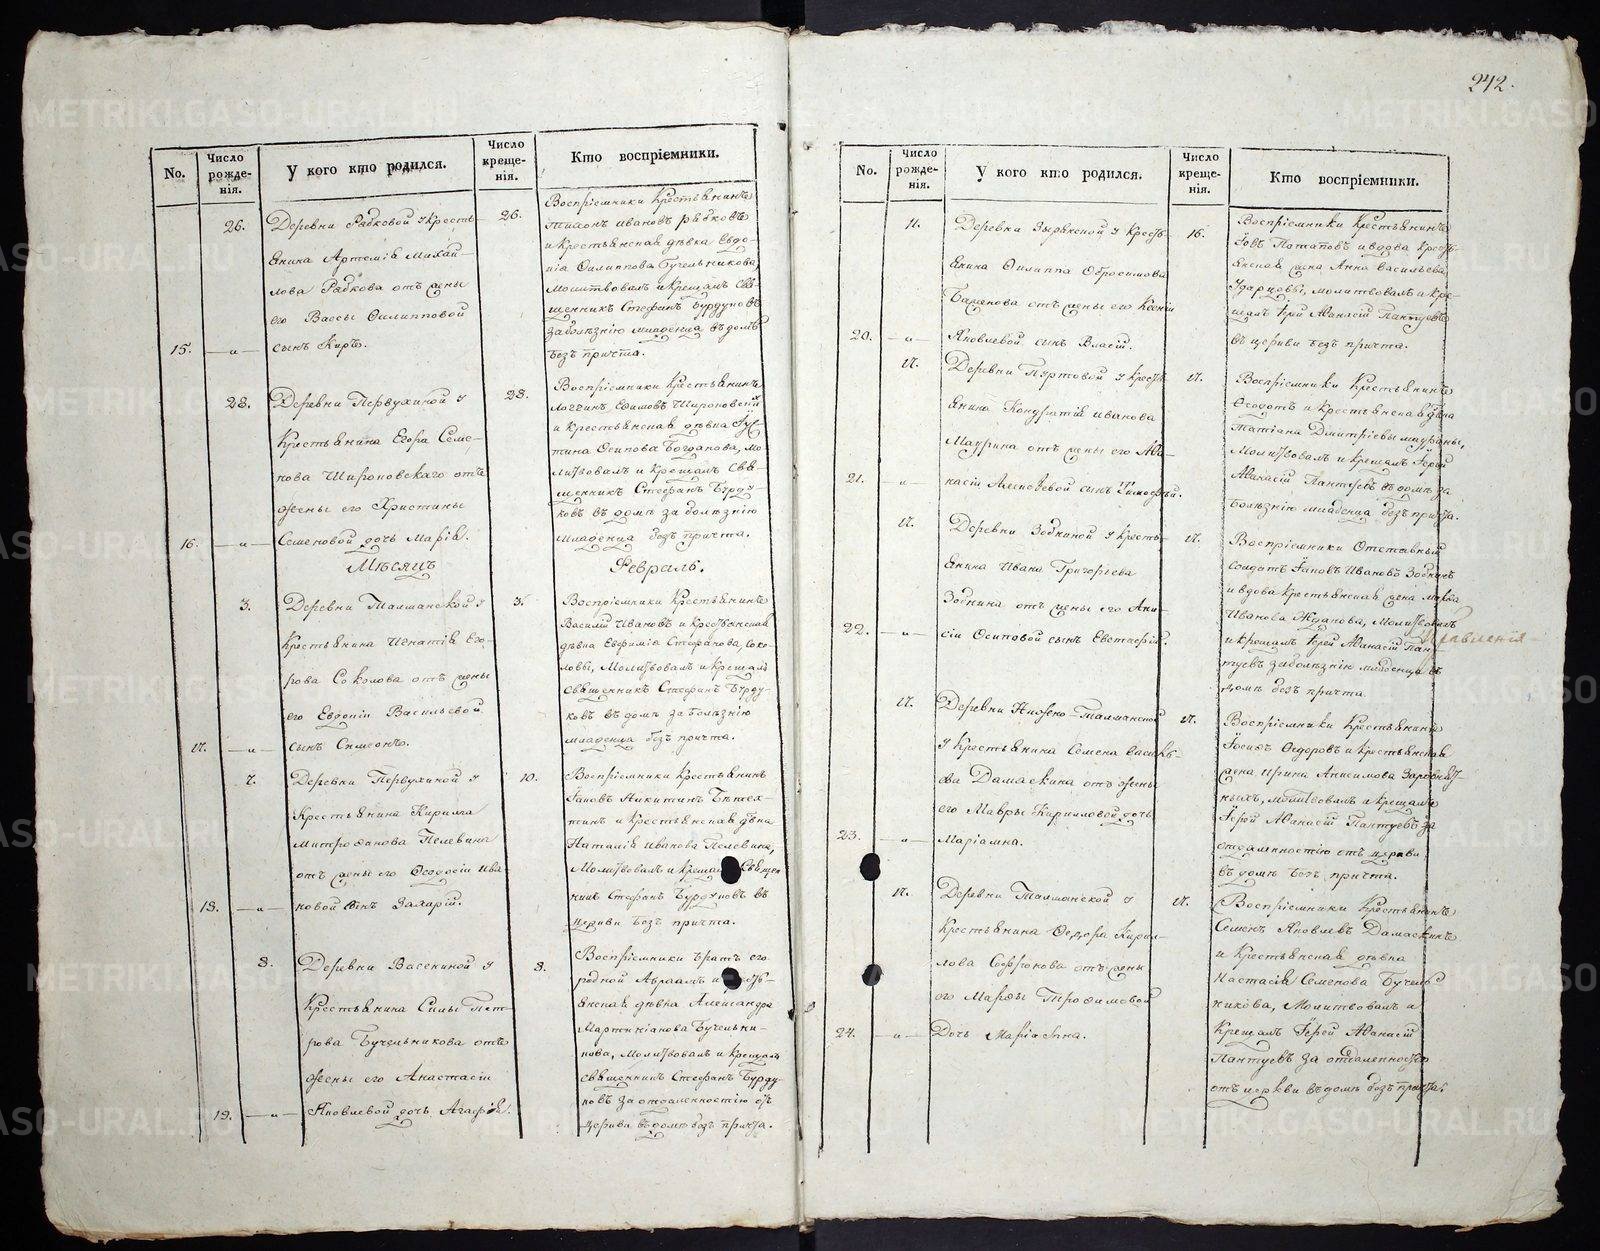 242.
No.
Число рожде-нія.
У кого кто родился.
Число креще-нія.
Кто воспріемники.
26.
Деревни Рябковой у кресть-
янина Артемія Михай-
лова Рябкова отъ жены
его Вассы Филипповой
15. —„— сынъ Киръ.
26.
Воспріемники Крестьянинъ
Тихонъ Ивановъ Рябковъ
и крестьянская дѣвка Евдо-
кіа Филиппова Бучельникова,
Молитвовалъ и крещалъ Свя-
щенникъ Стефанъ Бурдуковъ
за болѣзнію младенца въ домѣ
безъ причта.
28.
Деревни Первухиной у
Крестьянина Егора Семе-
нова Широковскаго отъ
жены его Христины
16. —„— Семеновой дочь Марія.
28.
Воспріемники Крестьянинъ
Логгинъ Ефимовъ Широковскій
и крестьянская дѣвка Іус-
тина Осипова Богданова, мо-
литвовалъ и крещалъ Свя-
щенникъ Стефанъ Бурду-
ковъ въ домѣ за болѣзнію
младенца безъ причта.
Мѣсяцъ
Февраль.
3.
Деревни Талманской у
Крестьянина Игнатія Его-
рова Соколова отъ жены
его Евдокіи Васильевой
17. —„— сынъ Симеонъ.
3.
Воспріемники Крестьянинъ
Василій Ивановъ и Крестьянская
дѣвка Евфимія Стефанова, Соко-
ловы, Молитвовалъ и крещалъ
священникъ Стефанъ Бурду-
ковъ въ домѣ за болѣзнію
младенца безъ причта.
7.
Деревни Первухиной у
Крестьянина Кирилла
Митрофанова Пелевина
отъ жены его Феодосіи Ива-
18. —„— новой сынъ Захарій.
10.
Воспріемники Крестьянинъ
Іаковъ Никитинъ
и крестьянская дѣвка
Наталія Иванова Пелевина,
Молитвовалъ и крещалъ Священ
никъ Стефанъ Бурдуковъ въ
церкви безъ причта.
8.
Деревни Васькиной у
Крестьянина Силы Пет-
рова Бучельникова отъ
жены его Анастасіи
19. —„— Яковлевой дочь Агафія.
8.
Воспріемники братъ его
родной Авраамъ и кресть-
янская дѣвка Александра
Мартиніанова Бучельни-
кова, Молитвовалъ и крещалъ
священникъ Стефанъ Бурду-
ковъ за отдаленностію отъ
церкви въ домѣ безъ причта.
No.
Число рожде-нія.
У кого кто родился.
Число креще-нія.
Кто воспріемники.
11.
Деревни Зырянской у кресть-
янина Филиппа Обросимова
Баженова отъ жены его Ксеніи
20. —„— Яковлевой сынъ Власій.
16.
Воспріемники Крестьянинъ
Іовъ Потаповъ и вдова кресть-
янская жена Анна Васильева
Ударцовы, молитвовалъ и кре-
щалъ Іерей Афанасій Пантуевъ
въ церкви безъ причта.
17.
Деревни Пуртовой у кресть-
янина Кондратія Иванова
Маурина отъ жены его Афа-
21. —„— насіи Алексѣевой сынъ Тимофѣй.
17.
Воспріемники Крестьянинъ
Феодотъ и крестьянская дѣвка
Татіана Дмитріевы Маурины,
Молитвовалъ и крещалъ Іерей
Афанасій Пантуевъ въ домѣ за
болѣзнію младенца безъ причта.
17.
Деревни Зобниной у кресть-
янина Ивана Григорьева
Зобнина отъ жены его Ани-
22. —„— сіи Осиповой сынъ Евстафій.
17.
Воспріемники Отставный
солдатъ Іаковъ Ивановъ Зобнинъ
и вдова крестьянская жена
Иванова Жданова, Молитвовалъ
и крещалъ Іерей Афанасій Пан-
туевъ за болѣзнію младенца въ
домѣ безъ причта.
17.
Деревни Нижено-Талманской
у Крестьянина Семена Василь-
ева Дамаскина отъ жены
его Мавры Кирилловой дочь
23. —„— Маріамна.
17.
Воспріемники Крестьянинъ
Іосифъ Федоровъ и крестьянская
жена Ирина Анисимова
молитвовалъ и крещалъ
Іерей Афанасій Пантуевъ за
отдаленностію отъ церкви
въ домѣ безъ причта.
17.
Деревни Талманской у
Крестьянина Федора Кирил-
лова Софронова отъ жены
его Марфы Трофимовой
24. —„— Дочь Маріамна.
17.
Воспріемники Крестьянинъ
Семенъ Яковлевъ Дамаскинъ
и крестьянская дѣвка
Настасія Семенова Бучель-
никова, Молитвовалъ и
Крещалъ Іерей Афанасій
Пантуевъ за отдаленностію
отъ церкви въ домѣ безъ причта.